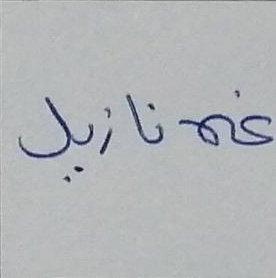 غم نازيل